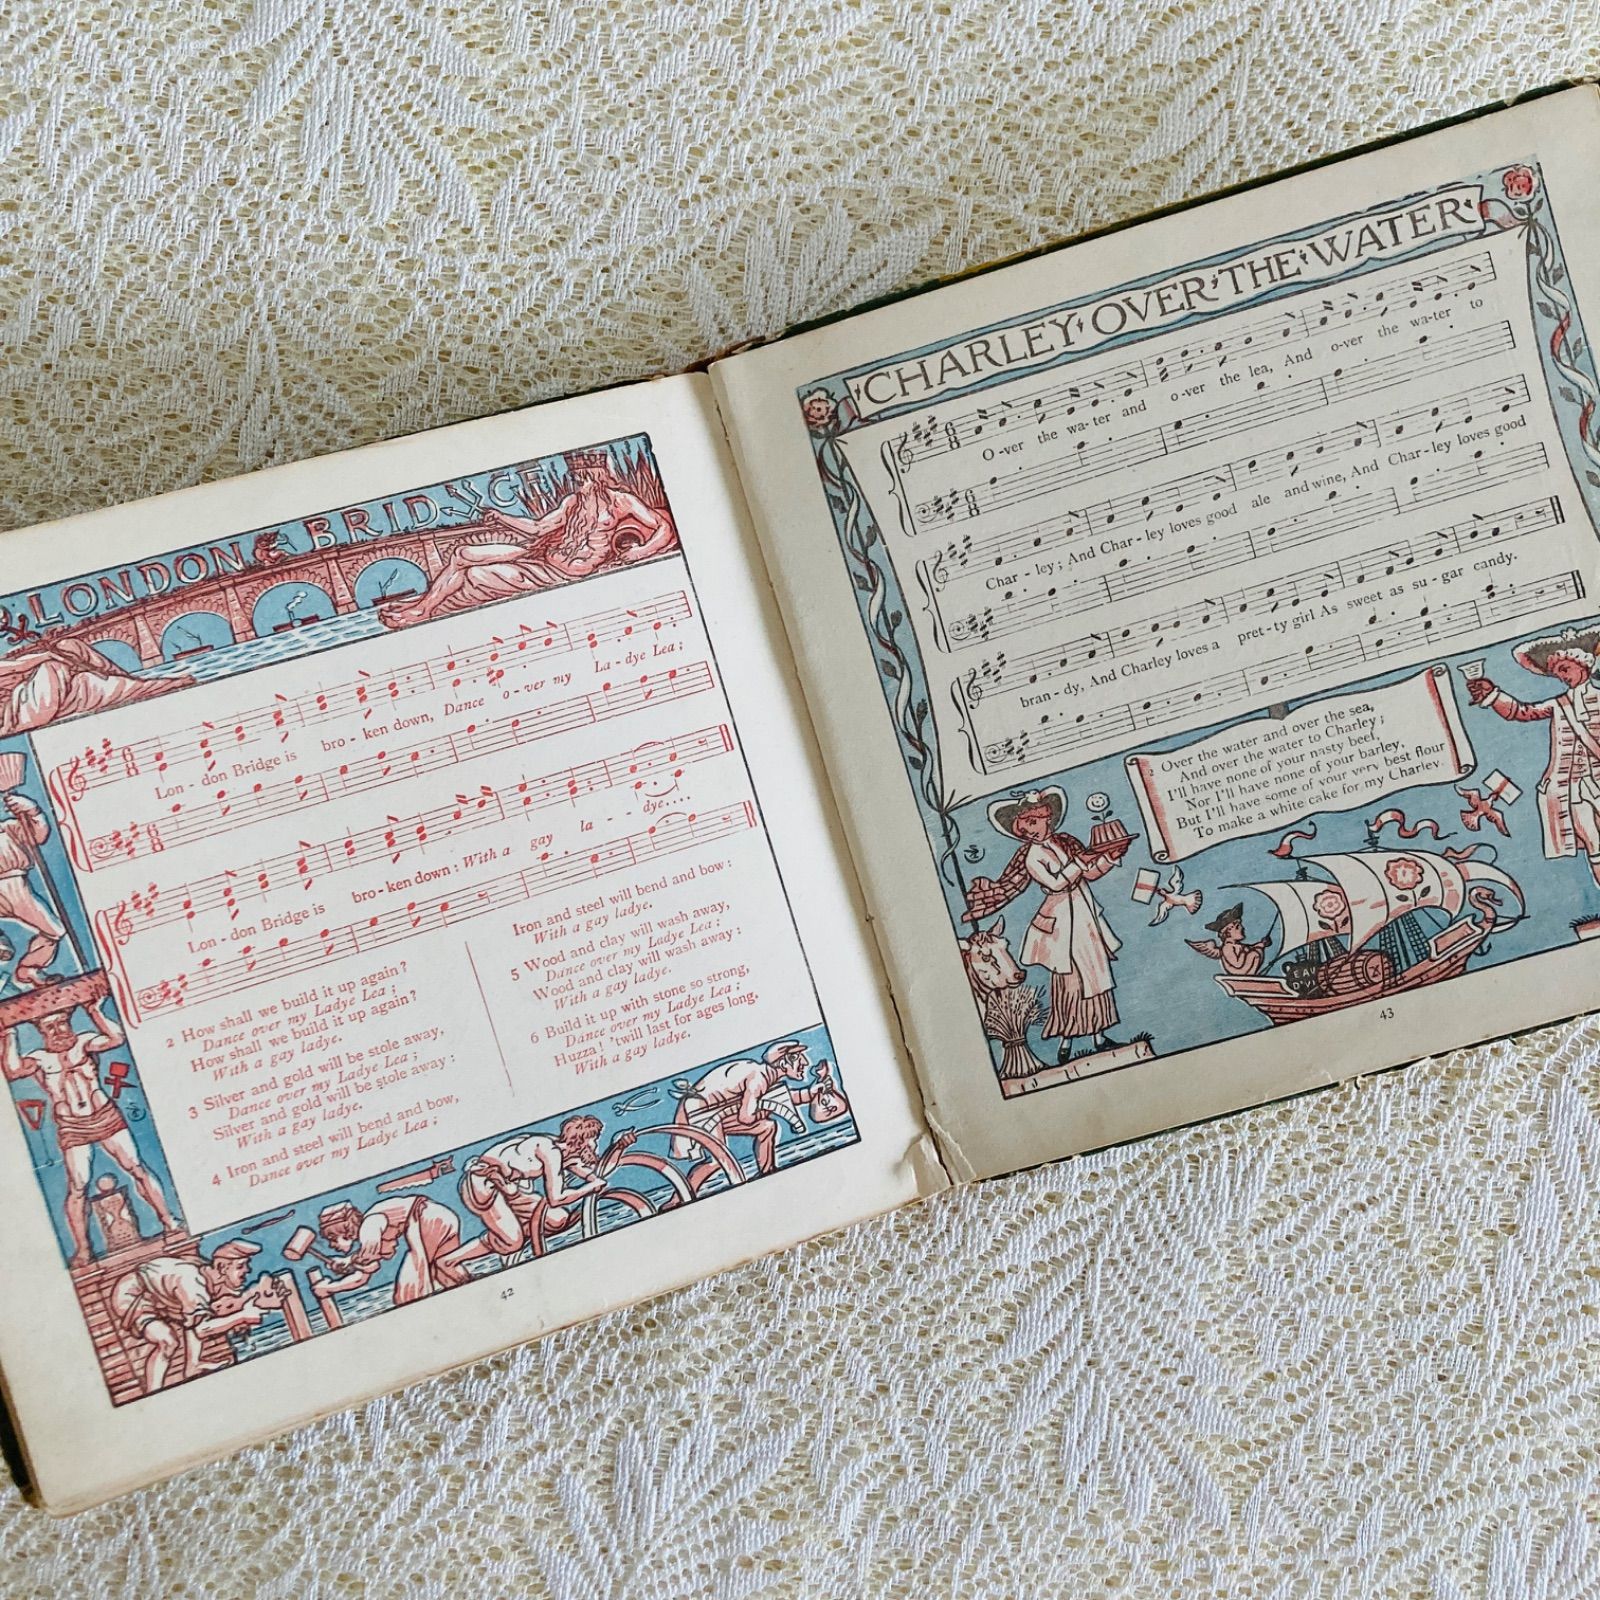 LONDON BRIDGE
Lon - don Bridge is bro - ken down, Dance o - ver my La - dye Lea ;
Lon - don Bridge is bro - ken down : With a gay la - - dye....
2 How shall we build it up again ?
Dance over my Ladye Lea ;
How shall we build it up again ?
With a gay ladye.
3 Silver and gold will be stole away,
Dance over my Ladye Lea ;
Silver and gold will be stole away :
With a gay ladye.
4 Iron and steel will bend and bow,
Dance over my Ladye Lea ;
Iron and steel will bend and bow :
With a gay ladye.
5 Wood and clay will wash away,
Dance over my Ladye Lea ;
Wood and clay will wash away :
With a gay ladye.
6 Build it up with stone so strong,
Dance over my Ladye Lea ;
Huzza ! 'twill last for ages long,
With a gay ladye.
42
CHARLEY OVER THE WATER
O - ver the wa - ter and o - ver the lea, And o - ver the wa - ter to
Char - ley ; And Char - ley loves good ale and wine, And Char - ley loves good
bran - dy, And Charley loves a pret - ty girl As sweet as su - gar candy.
2 Over the water and over the sea,
And over the water to Charley ;
I'll have none of your nasty beef,
Nor I'll have none of your barley,
But I'll have some of your very best flour
To make a white cake for my Charley.
EAU
D'VI
43